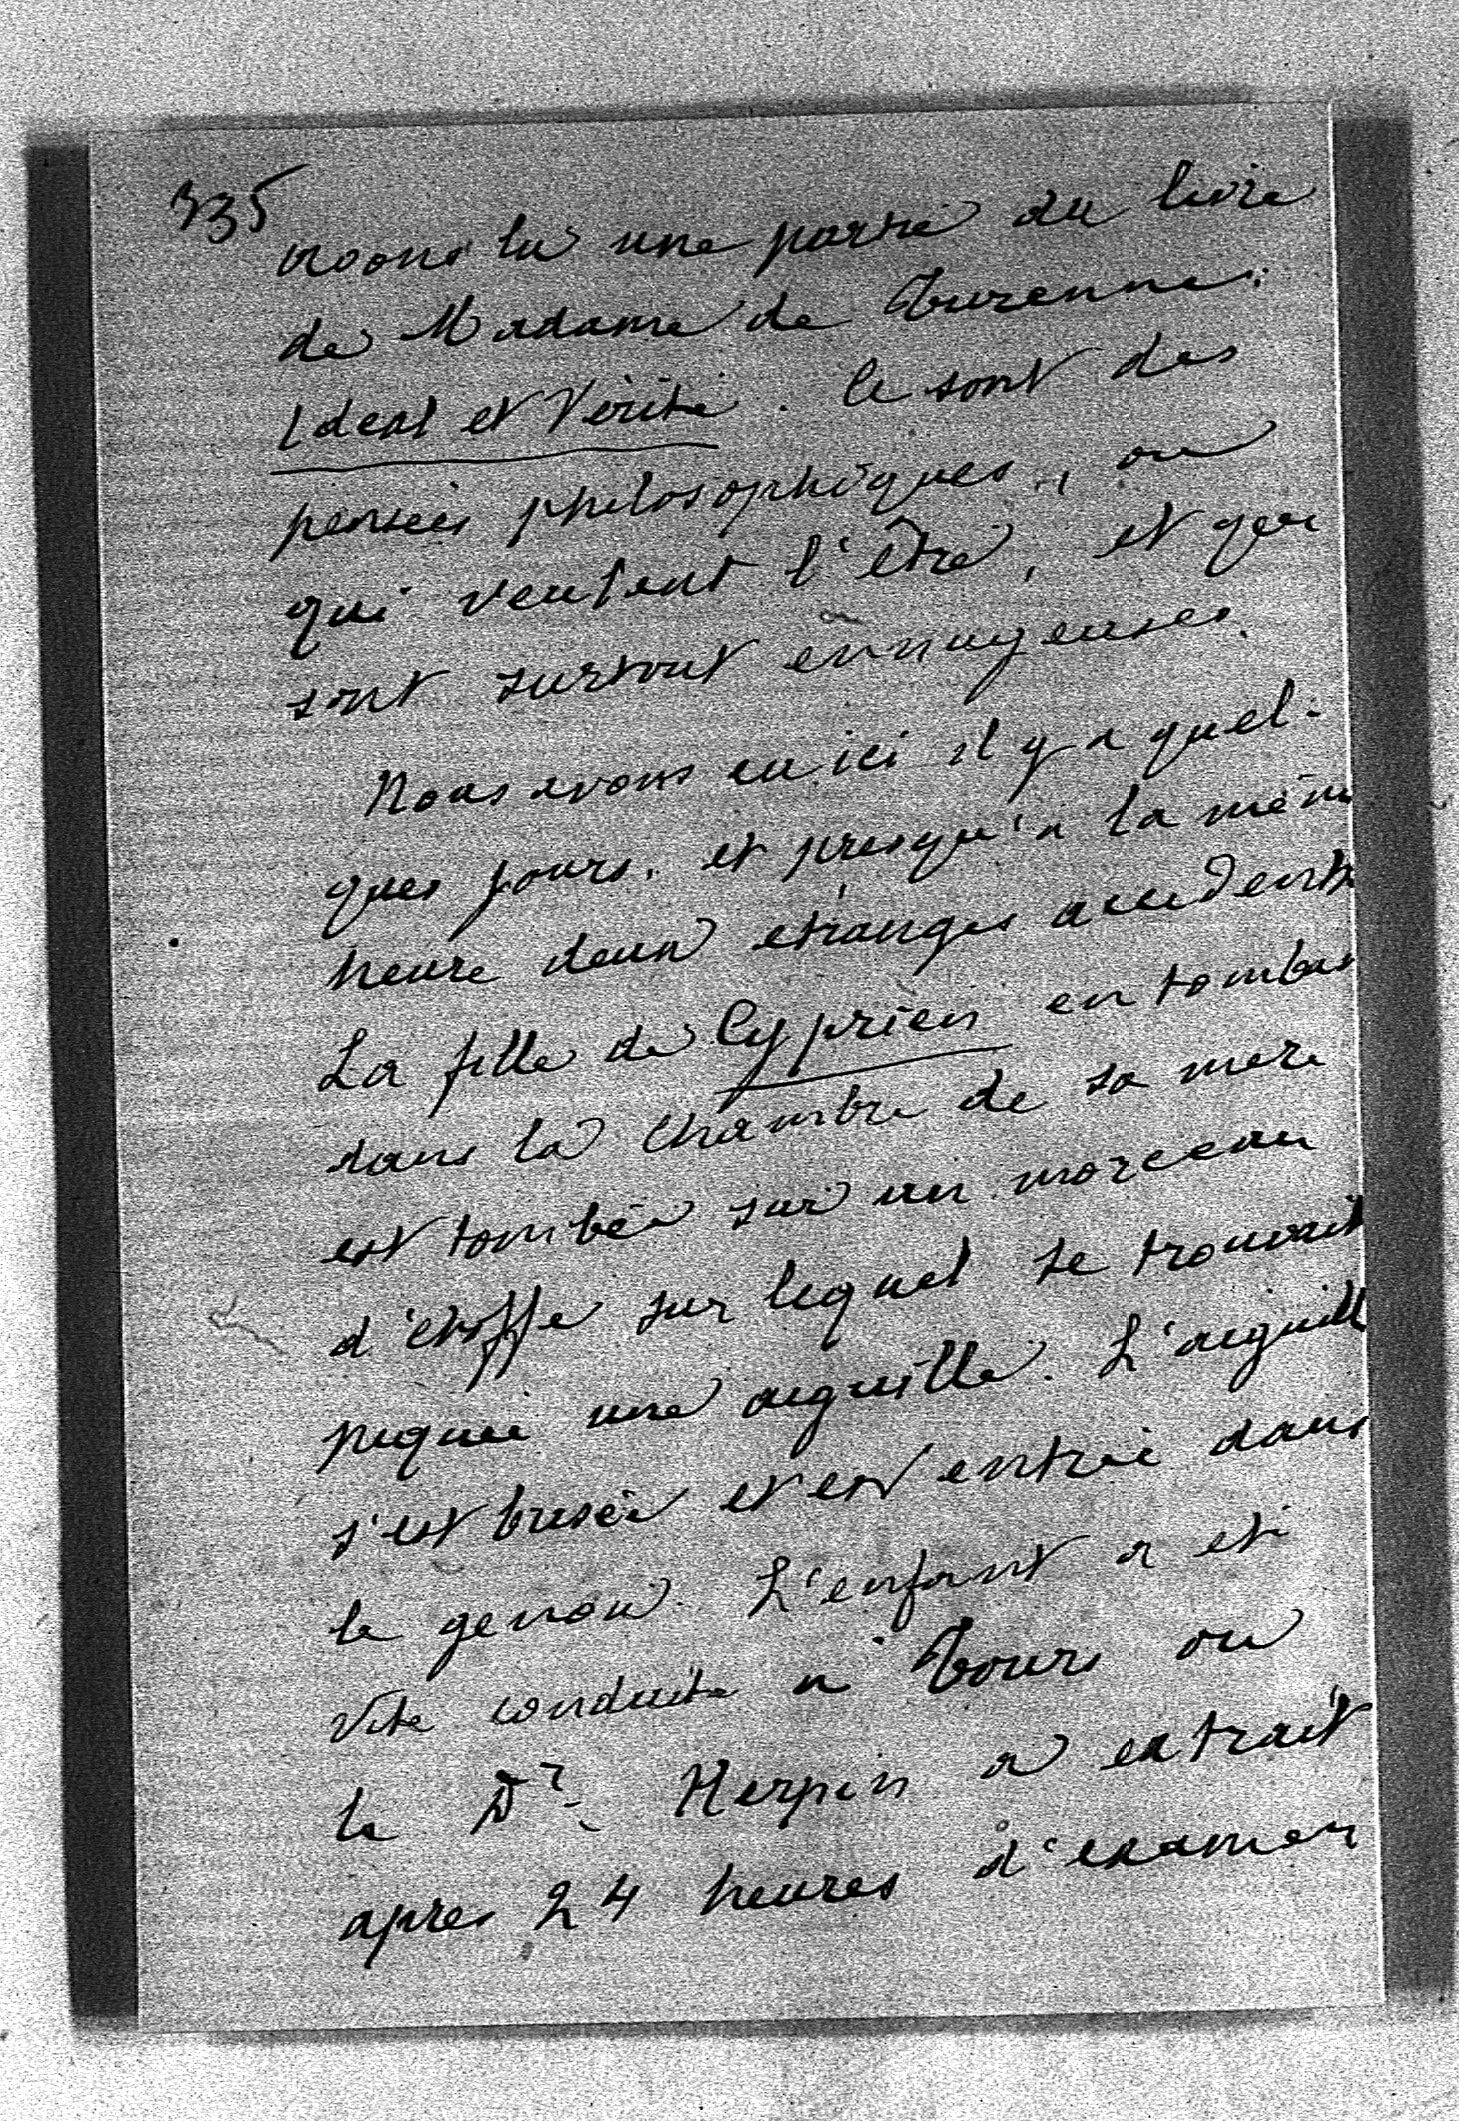 335
avons lu une partie du livre
de Madame de Turenne:
Idéal et Vérité. Ce sont des
pensées philosophiques, ou
qui veulent l'être, et qui
sont surtout ennuyeuses.
Nous avons eu ici il y a quel-
ques jours, et presqu'à la même
heure deux étranges accidents
La fille de Cyprien en tombant
dans la chambre de sa mère
est tombée sur un morceau
d'étoffe sur lequel se trouvait
piquée une aiguille. L'aiguille
s'est brisée et est entrée dans
le genou. L'enfant a été
vite conduite à Tours où
le Dr. Herpin a extrait
après 24 heures d'examen